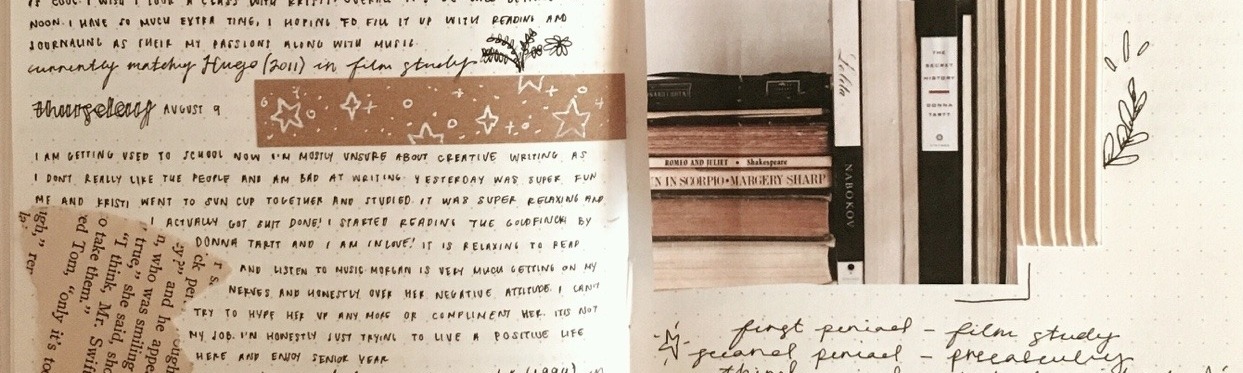 NOON. I HAVE SO MUCH EXTRA TIME, I HOPING TO FILL IT UP WITH READING AND
JOURNALING AS THEIR MY PASSIONS ALONG WITH MUSIC.
currently watching Hugo (2011) in film study
thursday AUGUST 9
I AM GETTING USED TO SCHOOL NOW I'M MOSTLY UNSURE ABOUT CREATIVE WRITING AS
I DON'T REALLY LIKE THE PEOPLE AND AM BAD AT WRITING. YESTERDAY WAS SUPER FUN
ME AND KRISTI WENT TO SUN CUP TOGETHER AND STUDIED. IT WAS SUPER RELAXING AND
I ACTUALLY GOT SHIT DONE! I STARTED READING THE GOLDFINCH BY
DONNA TARTT AND I AM INLOVE! IT IS RELAXING TO READ
AND LISTEN TO MUSIC. MORGAN IS VERY MUCH GETTING ON MY
NERVES AND HONESTLY OVER HER NEGATIVE ATTITUDE. I CAN'T
TRY TO HYPE HER UP ANY MORE OR COMPLIMENT HER. IT'S NOT
MY JOB. I'M HONESTLY JUST TRYING TO LIVE A POSITIVE LIFE
HERE AND ENJOY SENIOR YEAR
(1994)
ck per
cy?"
n, who and he appea
true," was smiling
"I think, she said, sho
o take them." Mr. Swif
ed Tom, "only it's to
igh," rer
Lolita
NABOKOV
THE
SECRET
HISTORY
DONNA
TARTT
ROMEO AND JULIET • Shakespeare
N IN SCORPIO • MARGERY SHARP
first period - film study
second period - precalculus
third period